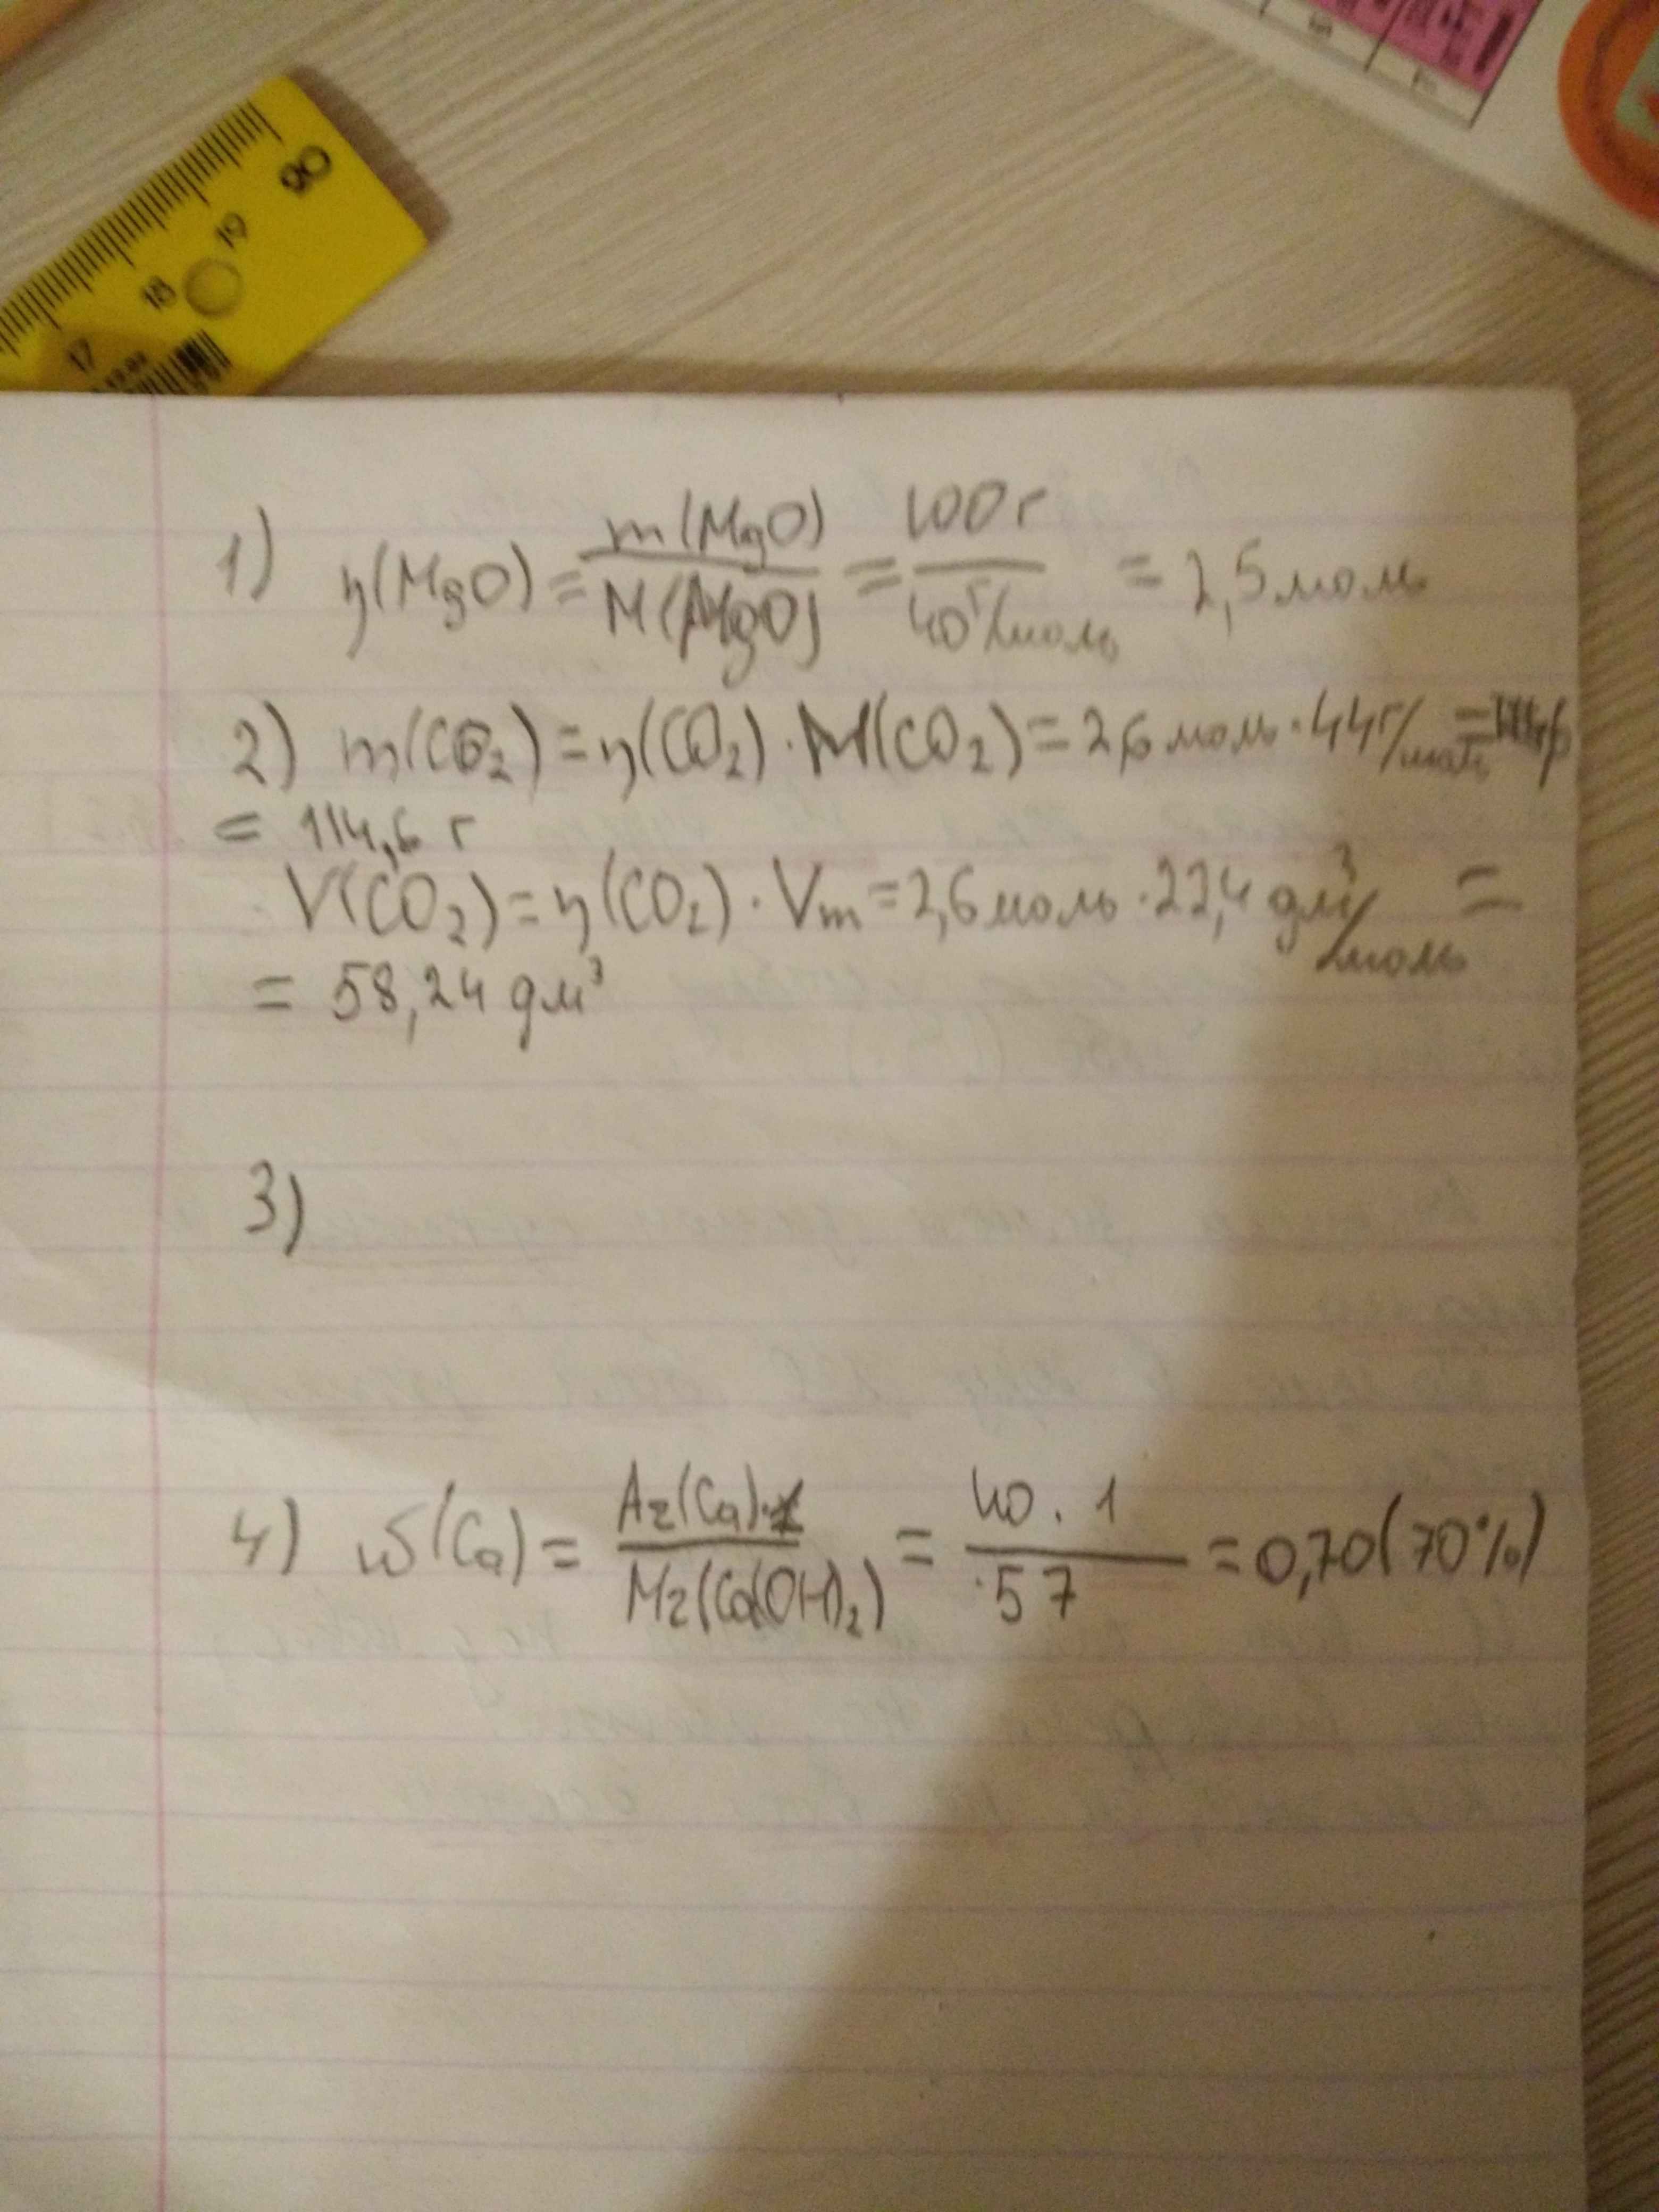 20
19
18
17
1) n(MgO) = m(MgO) / M(MgO) = 100 г / 40 г/моль = 2,5 моль
2) m(CO₂) = n(CO₂) · M(CO₂) = 2,6 моль · 44 г/моль =
= 114,6 г
V(CO₂) = n(CO₂) · Vm = 2,6 моль · 22,4 дм³/моль =
= 58,24 дм³
3)
4) w(Ca) = Az(Ca) · 1 / Mz(Ca(OH)₂) = 40 · 1 / 57 = 0,70 (70%)